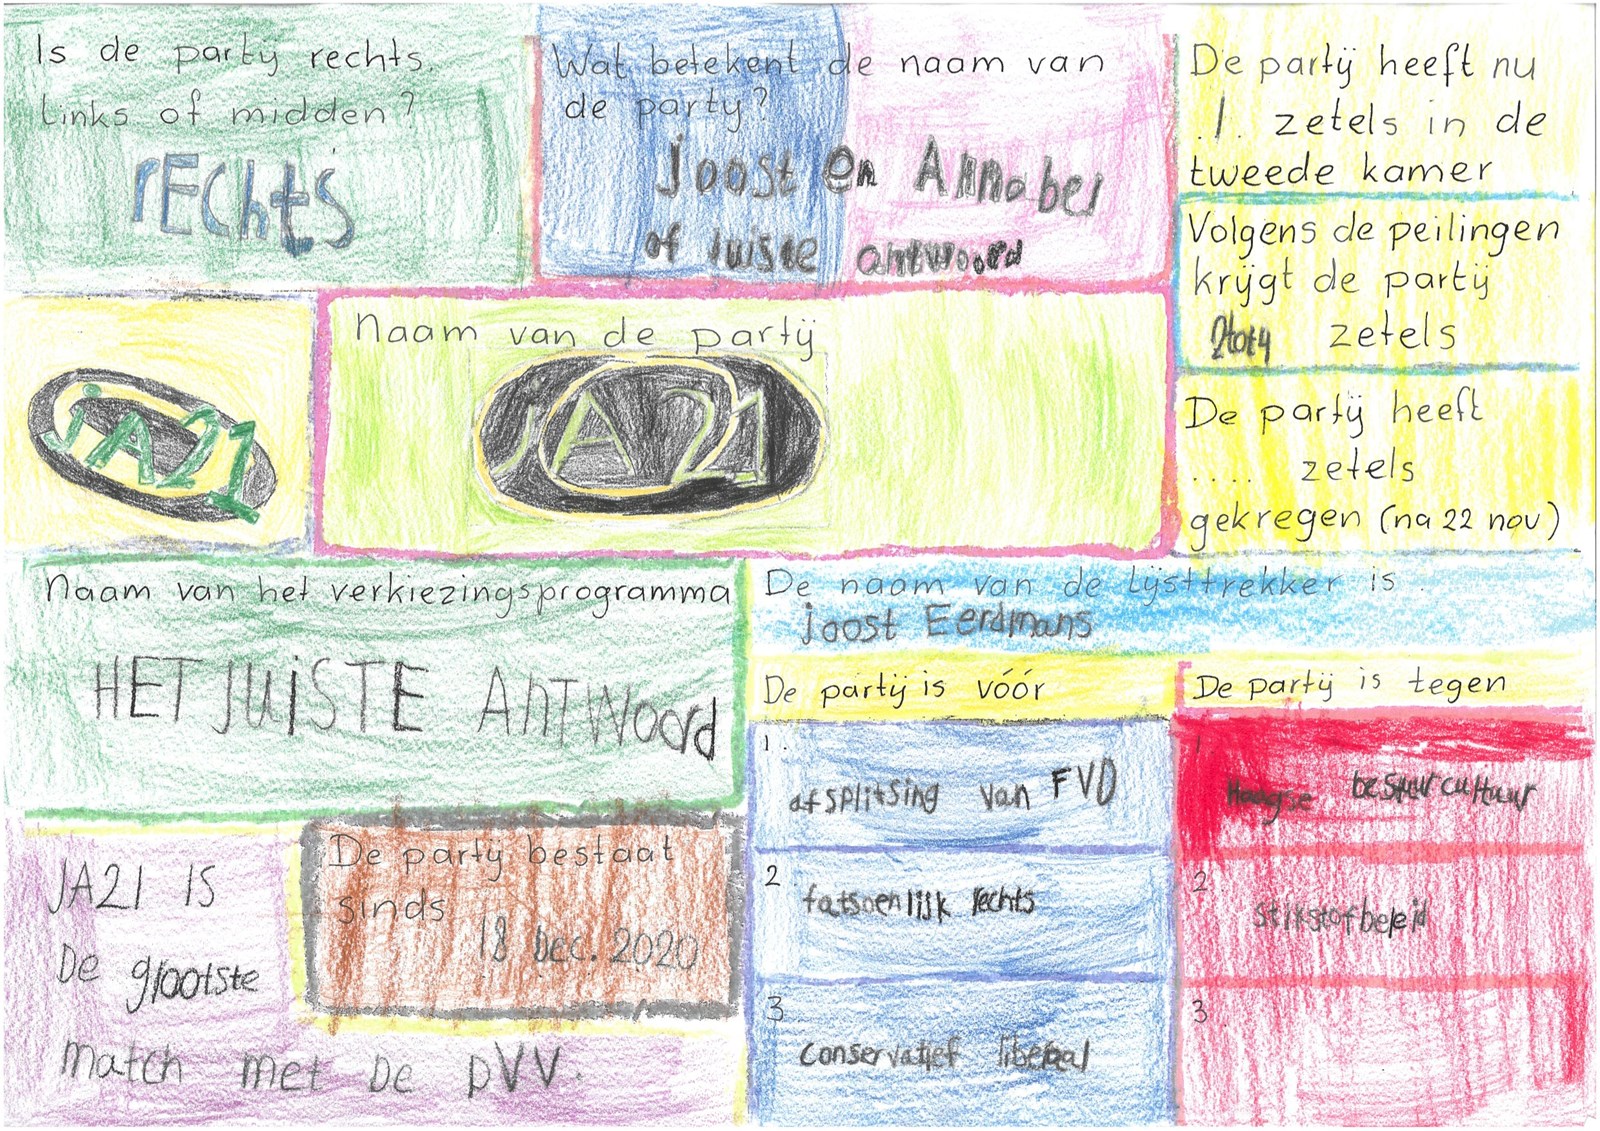 Is de party rechts
links of midden?
rEChtS
Wat betekent de naam van
de party?
Joost en Annabel
of juiste antwoord
De partij heeft nu
.1. zetels in de
tweede kamer
Volgens de peilingen
krijgt de partij
2tot4 zetels
De partij heeft
.... zetels
gekregen (na 22 nov)
JA21
Naam van de partij
JA21
Naam van het verkiezingsprogramma
HET JUiSTE AnTWoord
De naam van de lijsttrekker is
joost Eerdmans
De partij is vóór
1.
afsplitsing van FVD
2
fatsoenlijk rechts
3
conservatief liberaal
De partij is tegen
1.
Haagse bestuurcultuur
2
Stikstofbeleid
3
JA21 IS
De grootste
match met De pVV.
De party bestaat
sinds
18 Dec. 2020